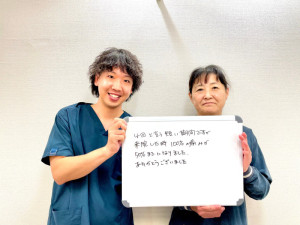 4回と言う短い期間ですが
来院した時100%の痛みが
50%までになりました。
ありがとうございました